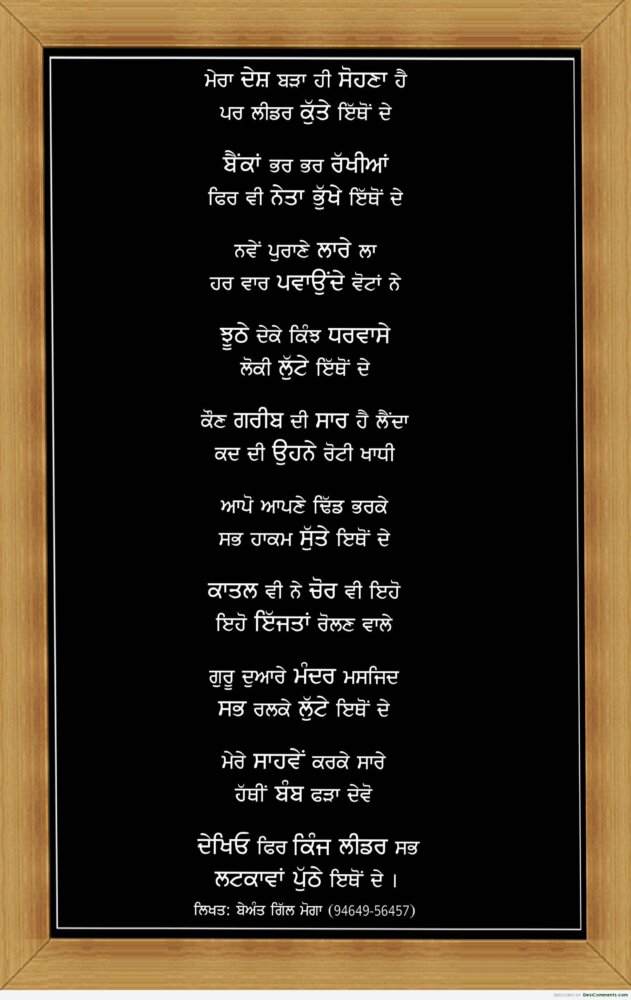 ਮੇਰਾ ਦੇਸ਼ ਬੜਾ ਹੀ ਸੋਹਣਾ ਹੈ
ਪਰ ਲੀਡਰ ਕੁੱਤੇ ਇੱਥੋਂ ਦੇ
ਬੈਂਕਾਂ ਭਰ ਭਰ ਰੱਖੀਆਂ
ਫਿਰ ਵੀ ਨੇਤਾ ਭੁੱਖੇ ਇੱਥੋਂ ਦੇ
ਨਵੇਂ ਪੁਰਾਣੇ ਲਾਰੇ ਲਾ
ਹਰ ਵਾਰ ਪਵਾਉਂਦੇ ਵੋਟਾਂ ਨੇ
ਝੂਠੇ ਦੇਕੇ ਕਿੰਝ ਧਰਵਾਸੇ
ਲੋਕੀ ਲੁੱਟੇ ਇੱਥੋਂ ਦੇ
ਕੌਣ ਗਰੀਬ ਦੀ ਸਾਰ ਹੈ ਲੈਂਦਾ
ਕਦ ਦੀ ਉਹਨੇ ਰੋਟੀ ਖਾਧੀ
ਆਪੋ ਆਪਣੇ ਢਿੱਡ ਭਰਕੇ
ਸਭ ਹਾਕਮ ਸੁੱਤੇ ਇਥੋਂ ਦੇ
ਕਾਤਲ ਵੀ ਨੇ ਚੋਰ ਵੀ ਇਹੋ
ਇਹੋ ਇੱਜਤਾਂ ਰੋਲਣ ਵਾਲੇ
ਗੁਰੂ ਦੁਆਰੇ ਮੰਦਰ ਮਸਜਿਦ
ਸਭ ਰਲਕੇ ਲੁੱਟੇ ਇਥੋਂ ਦੇ
ਮੇਰੇ ਸਾਹਵੇਂ ਕਰਕੇ ਸਾਰੇ
ਹੱਥੀਂ ਬੰਬ ਫੜਾ ਦੇਵੋ
ਦੇਖਿਓ ਫਿਰ ਕਿੰਜ ਲੀਡਰ ਸਭ
ਲਟਕਾਵਾਂ ਪੁੱਠੇ ਇਥੋਂ ਦੇ ।
ਲਿਖਤ: ਬੇਅੰਤ ਗਿੱਲ ਮੋਗਾ (94649-56457)
uploaded on DesiComments.com